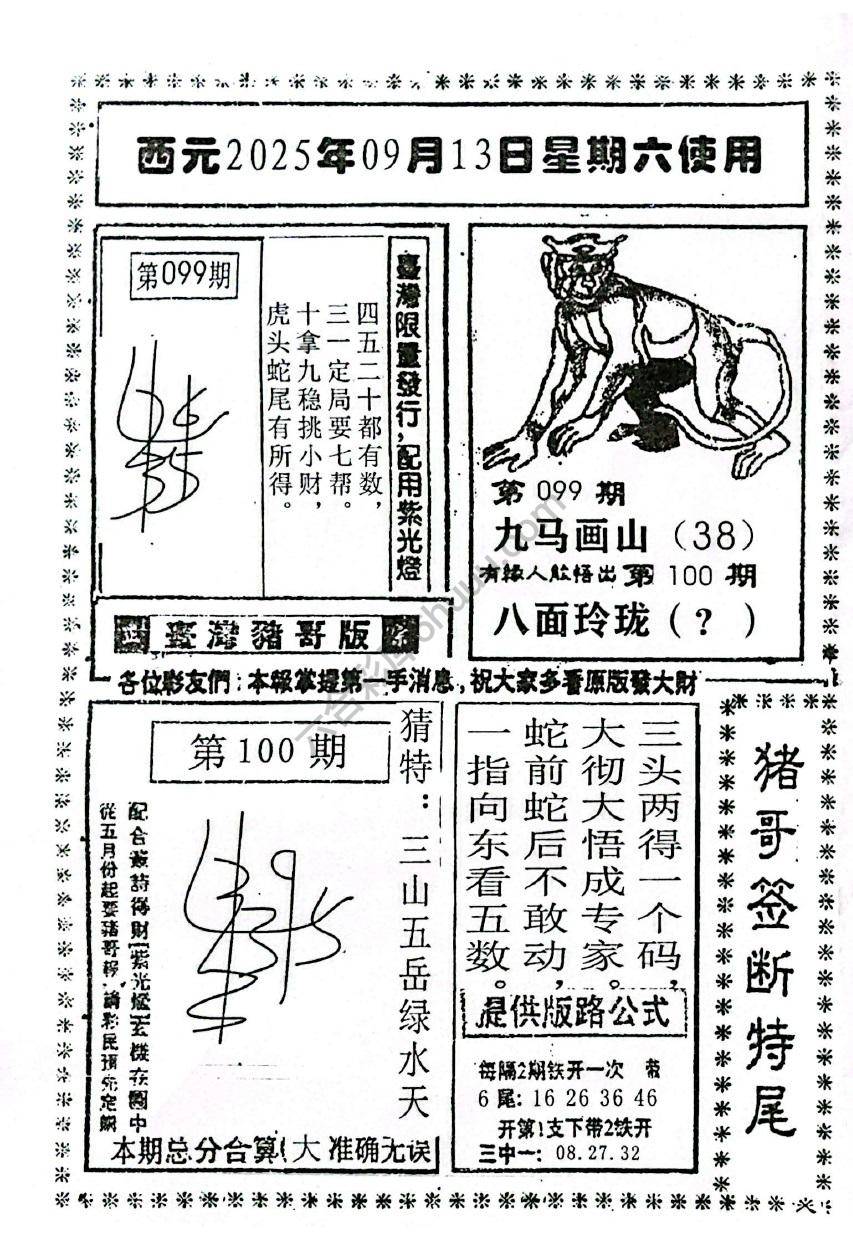 西元2025年09月13日星期六使用
第099期
四五二十都有数，
三一定局要七帮。
十拿九稳挑小财，
虎头蛇尾有所得。
臺灣限量發行，配用紫光燈
第 099 期
九马画山（38）
有緣人能悟出 第 100 期
八面玲珑（？）
臺灣豬哥版
各位彩友們：本報掌握第一手消息，祝大家多看原版發大財
第100期
猜特：三山五岳绿水天
配合簽詩得財(紫光燈)玄機在圖中
從五月份起要豬哥報，請彩民預先定購
本期总分合算(大 准确无误
三头两得一个码，
大彻大悟成专家。
蛇前蛇后不敢动，
一指向东看五数。
提供版路公式
每隔2期铁开一次
6尾: 16 26 36 46
开第1支下带2铁开
三中一: 08.27.32
猪哥签断特尾